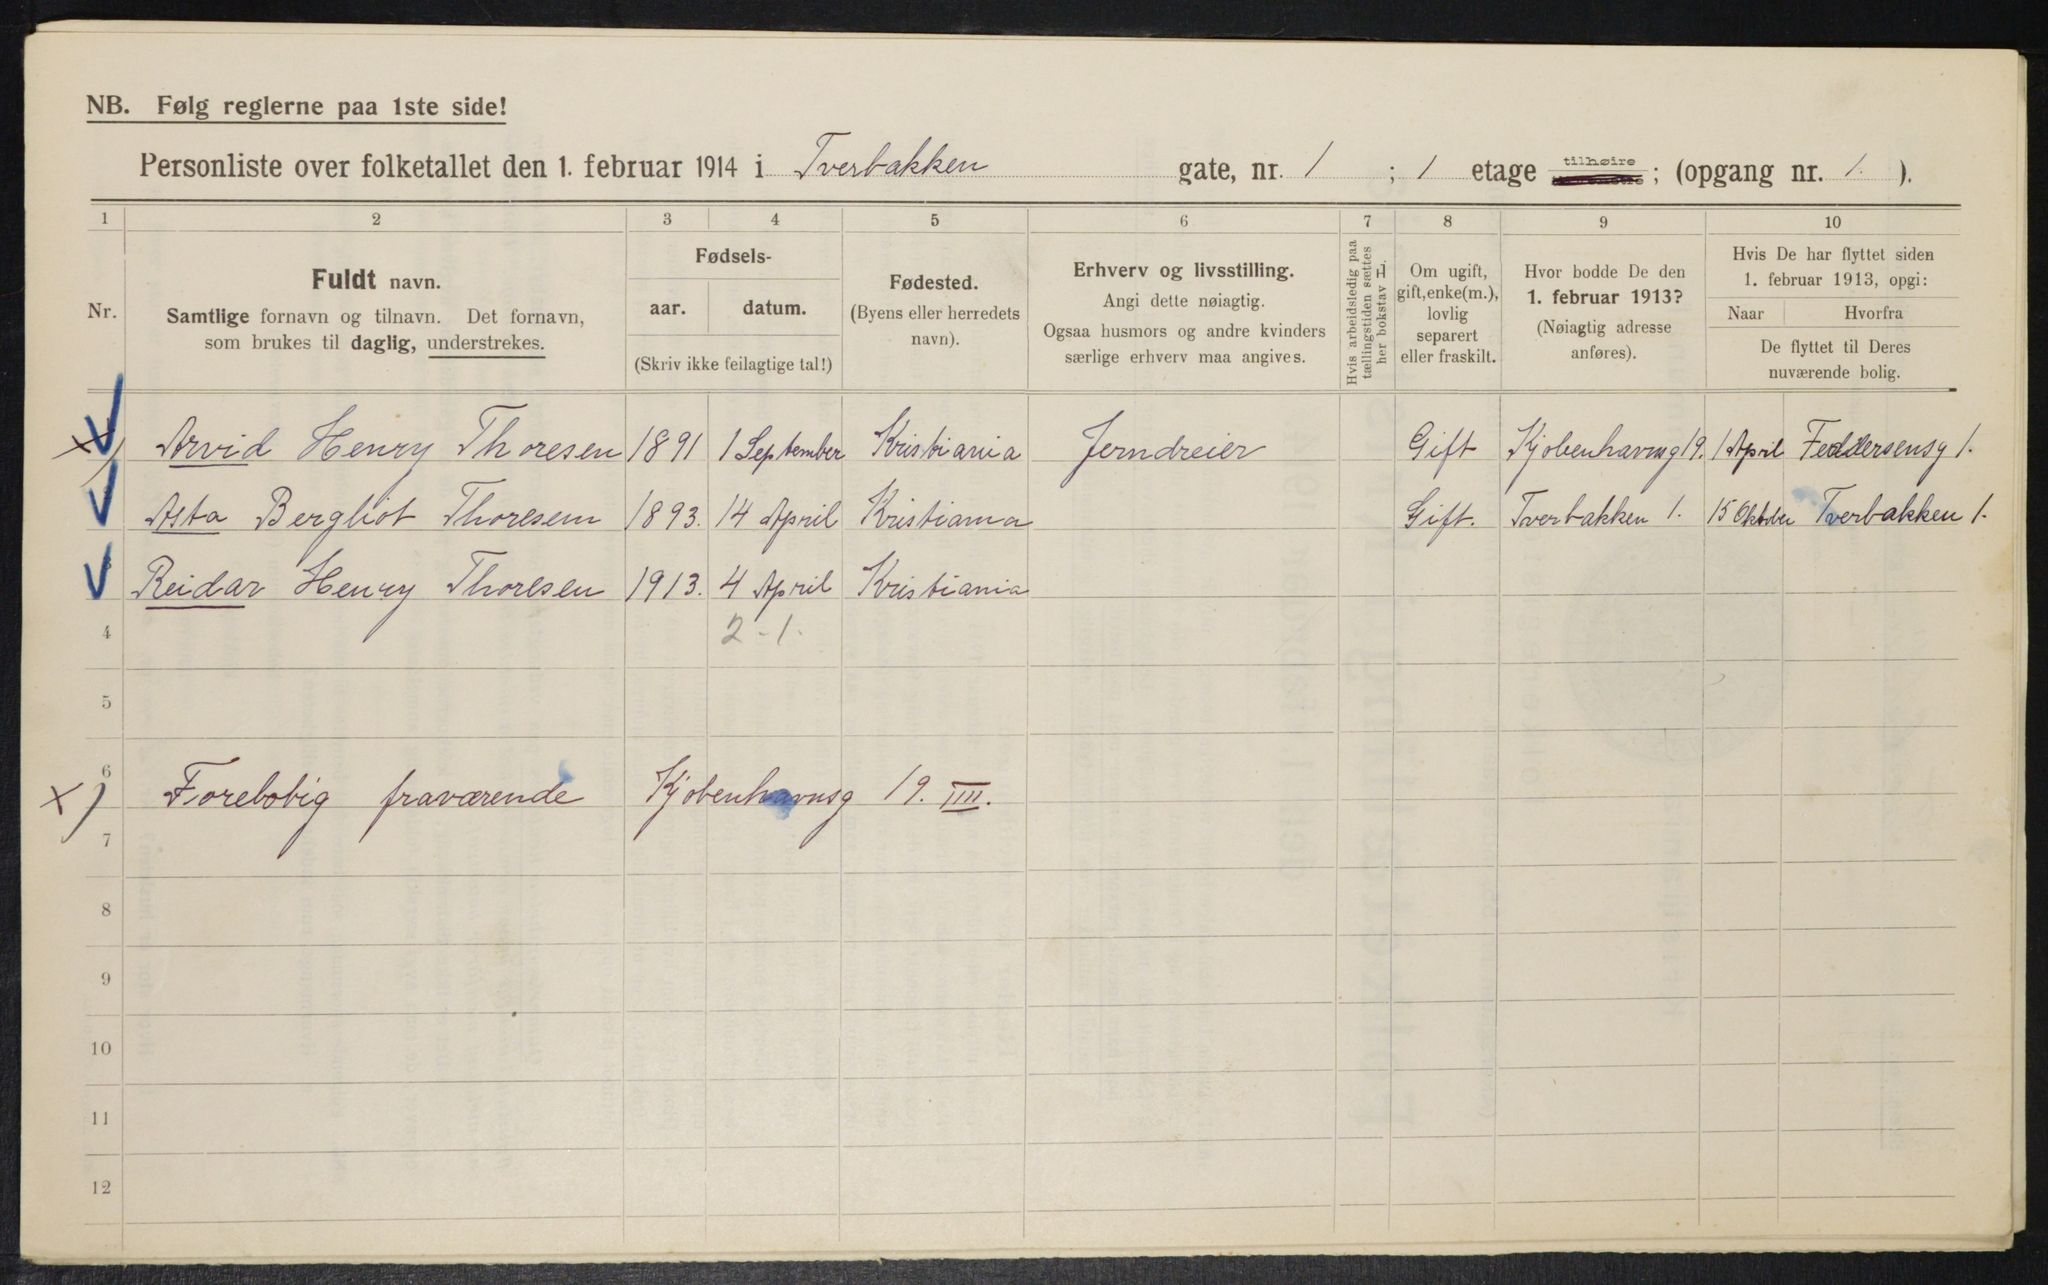 NB. Følg reglerne paa 1ste side!
Personliste over folketallet den 1. februar 1914 i Tverbakken gate, nr. 1 ; 1 etage tilhøire ; (opgang nr. 1. ).
1 2 3 4 5 6 7 8 9 10
Nr.
Fuldt navn.
Samtlige fornavn og tilnavn. Det fornavn,
som brukes til daglig, understrekes.
Fødsels-
aar. datum.
(Skriv ikke feilagtige tal!)
Fødested.
(Byens eller herredets
navn).
Erhverv og livsstilling.
Angi dette nøiagtig.
Ogsaa husmors og andre kvinders
særlige erhverv maa angives.
Hvis arbeidsledig paa
tællingstiden sættes
her bokstav
Om ugift,
gift, enke(m.),
lovlig
separert
eller fraskilt.
Hvor bodde De den
1. februar 1913?
(Nøiagtig adresse
anføres).
Hvis De har flyttet siden
1. februar 1913, opgi:
Naar Hvorfra
De flyttet til Deres
nuværende bolig.
x) Arvid Henry Thoresen 1891 1 September Kristiania Jerndreier Gift Kjøbenhavnsg 19. 1 April Feddersensg 1.
Asta Bergliot Thoresen 1893. 14 April Kristiania Gift. Tverbakken 1. 15 Oktober Tverbakken 1.
Reidar Henry Thoresen 1913. 4 April Kristiania
4 2-1.
5
6
x) Forebobig fraværende Kjøbenhavnsg 19. IIII.
7
8
9
10
11
12